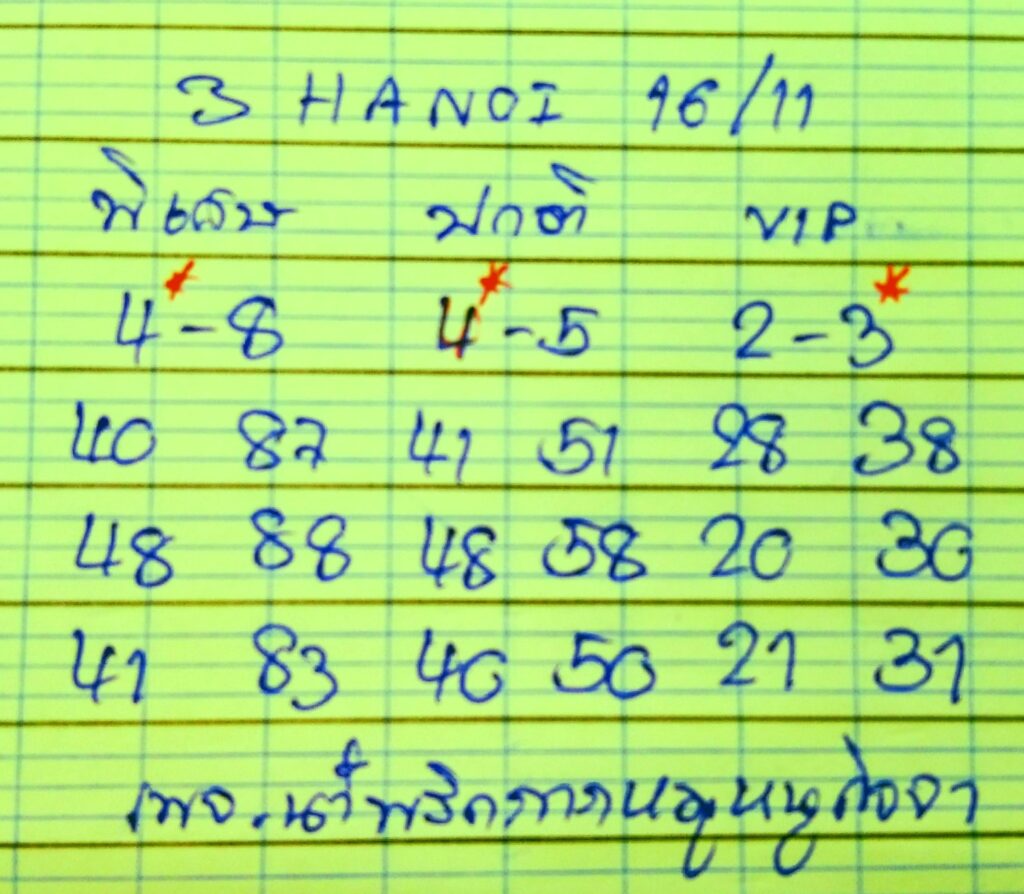 3 HANOI 16/11
พิเศษ ปกติ VIP
4* - 8 4* - 5 2 - 3*
40 87 41 51 28 38
48 88 48 58 20 30
41 83 40 50 21 31
เพจ.น้ำพริกกากหมู